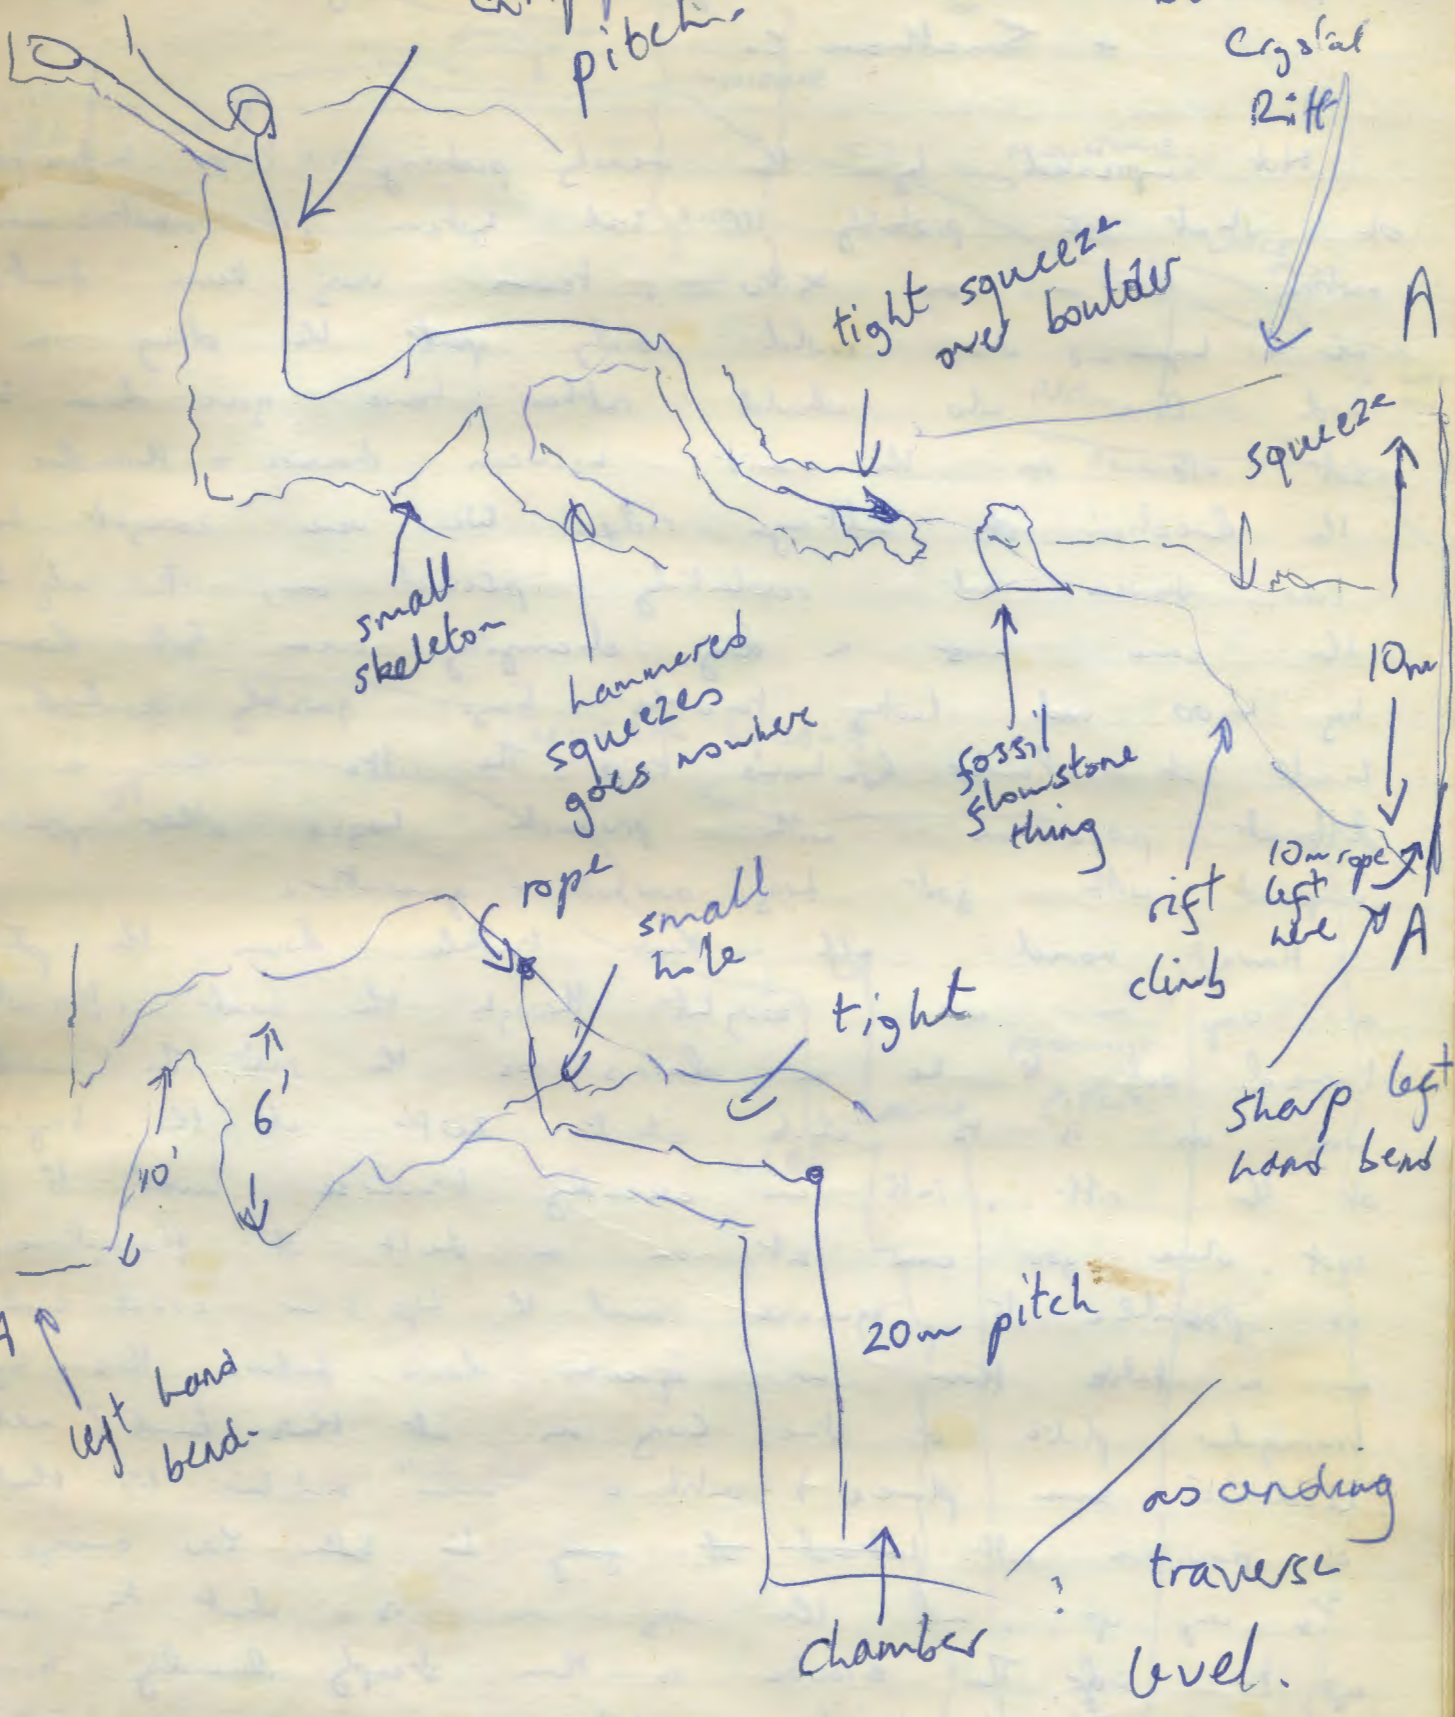 pitch.
Crystal
Rift
tight squeeze
over boulder
A
squeeze
small
skeleton
hammered
squeezes
goes nowhere
fossil
flowstone
thing
10m
rift
climb
10m rope
left
here
A
sharp left
hand bend
rope
small
hole
tight
6'
10'
A
left hand
bend.
20m pitch
chamber
?
ascending
traverse
level.